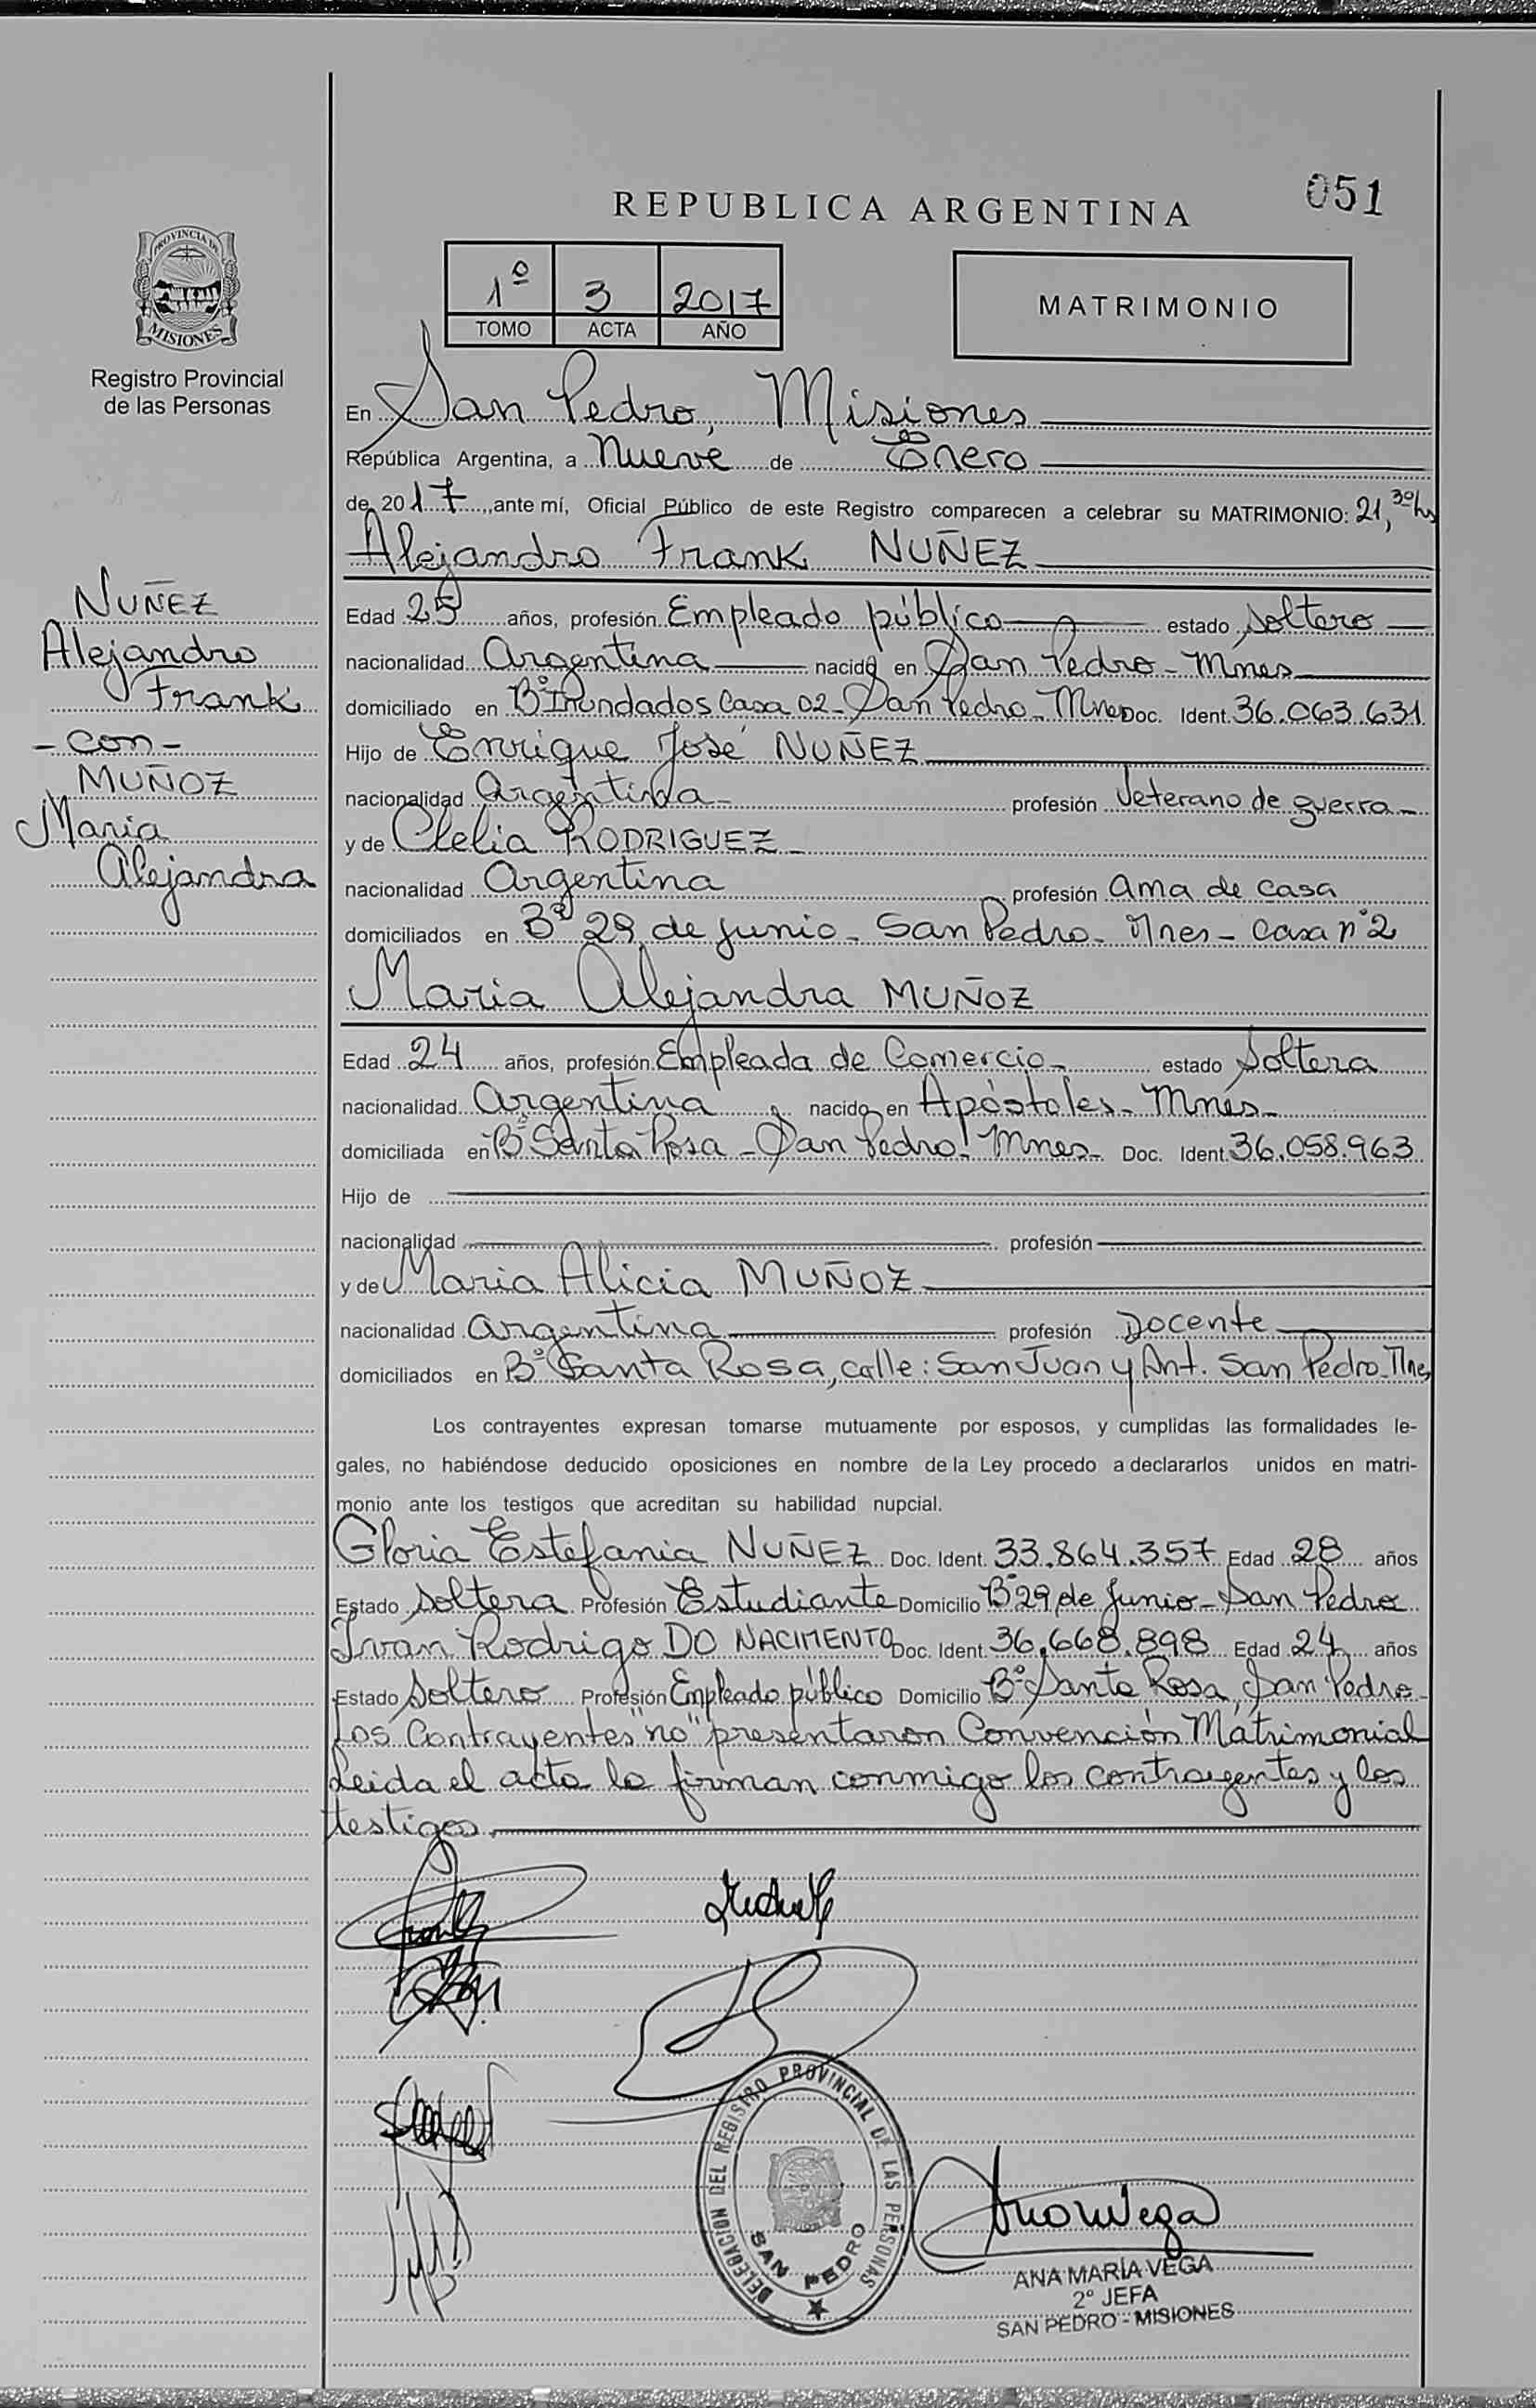 051
REPUBLICA ARGENTINA
1º 3 2017
TOMO ACTA AÑO
MATRIMONIO
PROVINCIA DE
MISIONES
Registro Provincial
de las Personas
En San Pedro, Misiones
República Argentina, a Nueve de Enero
de 2017, ante mí, Oficial Público de este Registro comparecen a celebrar su MATRIMONIO: 21,30hs
Alejandro Frank NUÑEZ
NUÑEZ
Alejandro
Frank
- con -
MUÑOZ
Maria
Alejandra
Edad 25 años, profesión Empleado público estado Soltero
nacionalidad Argentina nacido en San Pedro - Mnes
domiciliado en Bº Inundados Casa 02 - San Pedro - Mnes Doc. Ident. 36.063.631
Hijo de Enrique José NUÑEZ
nacionalidad Argentina profesión Veterano de guerra
y de Clelia RODRIGUEZ
nacionalidad Argentina profesión ama de casa
domiciliados en Bº 29 de junio - San Pedro - Mnes - Casa nº2
Maria Alejandra MUÑOZ
Edad 24 años, profesión Empleada de Comercio estado Soltera
nacionalidad Argentina nacido en Apóstoles - Mnes
domiciliada en Bº Santa Rosa - San Pedro - Mnes Doc. Ident. 36.058.963
Hijo de
nacionalidad profesión
y de Maria Alicia MUÑOZ
nacionalidad Argentina profesión Docente
domiciliados en Bº Santa Rosa, calle: San Juan y Ant. San Pedro - Mnes
Los contrayentes expresan tomarse mutuamente por esposos, y cumplidas las formalidades le-
gales, no habiéndose deducido oposiciones en nombre de la Ley procedo a declararlos unidos en matri-
monio ante los testigos que acreditan su habilidad nupcial.
Gloria Estefania NUÑEZ Doc. Ident. 33.864.357 Edad 28 años
Estado Soltera Profesión Estudiante Domicilio Bº 29 de Junio - San Pedro
Ivan Rodrigo DO NACIMENTO Doc. Ident. 36.668.898 Edad 24 años
Estado Soltero Profesión Empleado público Domicilio Bº Santa Rosa, San Pedro
Los Contrayentes "no" presentaron Convención Matrimonial
Leida el acta la firman conmigo los contrayentes y los
testigos.
DELEGACION DEL REGISTRO PROVINCIAL DE LAS PERSONAS
SAN PEDRO
ANA MARÍA VEGA
2º JEFA
SAN PEDRO - MISIONES